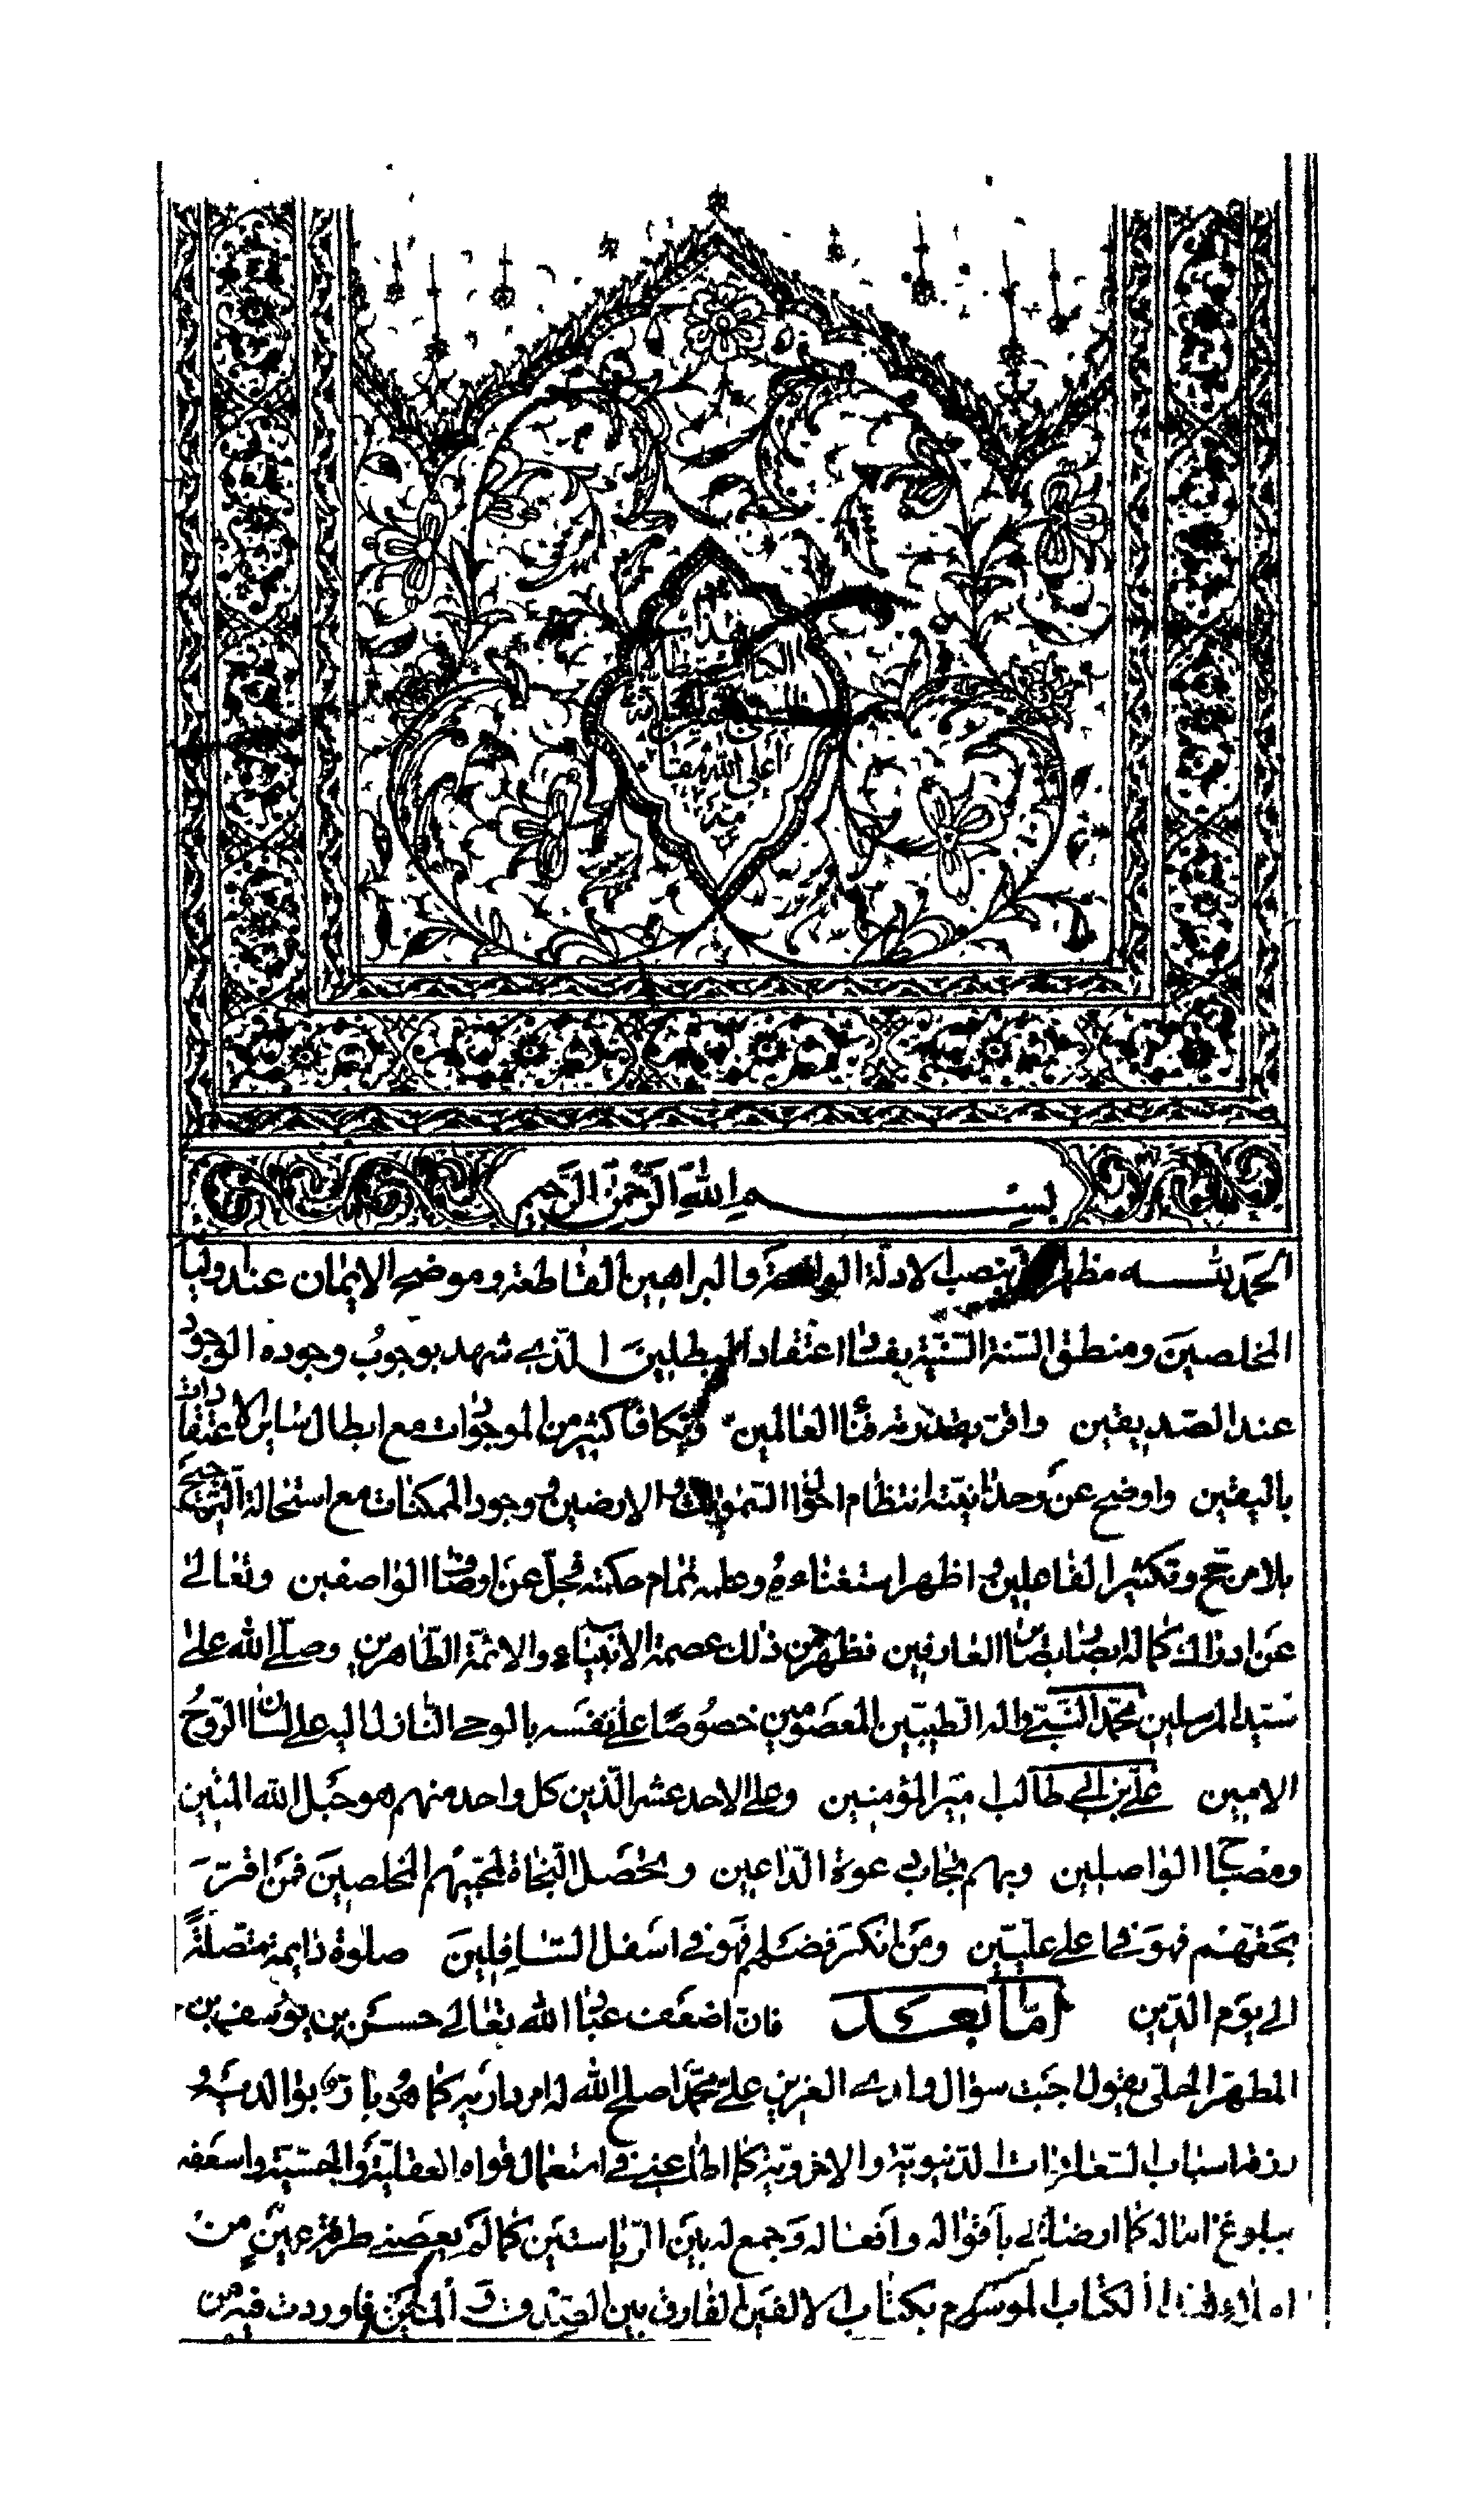 أعلى الله مقا
مه
بسم الله الرحمن الرحيم
الحمد لله مظهر بنصب الادلة الواضحة والبراهين القاطعة وموضح الايمان عند اوليائه
المخلصين ومنطق السنة السنية بفساد اعتقاد المبطلين الذي شهد بوجوب وجوده الوجود
عند الصديقين واقر بقدرته فناء العالمين وتكافأ كثير من الموجودات مع ابطال سائر الاعتقادات
باليقين واوضح عن وحدانيته انتظام احوال السموات والارضين ووجود الممكنات مع استحالة الترجيح
بلا مرجح وتكثير الفاعلين واظهر استغناءه وعلمه تمام حكمته فجل عن اوصاف الواصفين وتعالى
عن ادراك كماله بصائر ابصار العارفين فظهر من ذلك عصمة الانبياء والائمة الطاهرين وصلى الله على
سيد المرسلين محمد النبي واله الطيبين المعصومين خصوصا على نفسه بالوحى النازل اليه على لسان الروح
الامين علي بن ابي طالب امير المؤمنين وعلى الاحد عشر الذين كل واحد منهم هو حبل الله المتين
ومصباح الواصلين وبهم يجاب دعوة الداعين ويحصل النجاة لمحبيهم المخلصين فمن اقر
بحقهم فهو في اعلى عليين ومن انكر فضلهم فهو في اسفل السافلين صلوة دايمة متصلة
الى يوم الدين اما بعد فان اضعف عباد الله تعالى حسن بن يوسف بن
المطهر الحلي يقول اجبت سؤال ولدي العزيز علي محمد اصلح الله له امر داريه كما هو بار بوالديه و
رزقه اسباب السعادات الدنيوية والاخروية كما اطاعني في استعمال قواه العقلية والحسية واسعفه
ببلوغ اماله كما ارضاني باقواله وافعاله وجمع له بين الرياستين كما لم يعصني طرفة عين من
املاء هذا الكتاب الموسوم بكتاب الالفين الفارق بين الصدق و المين فاوردت فيه من